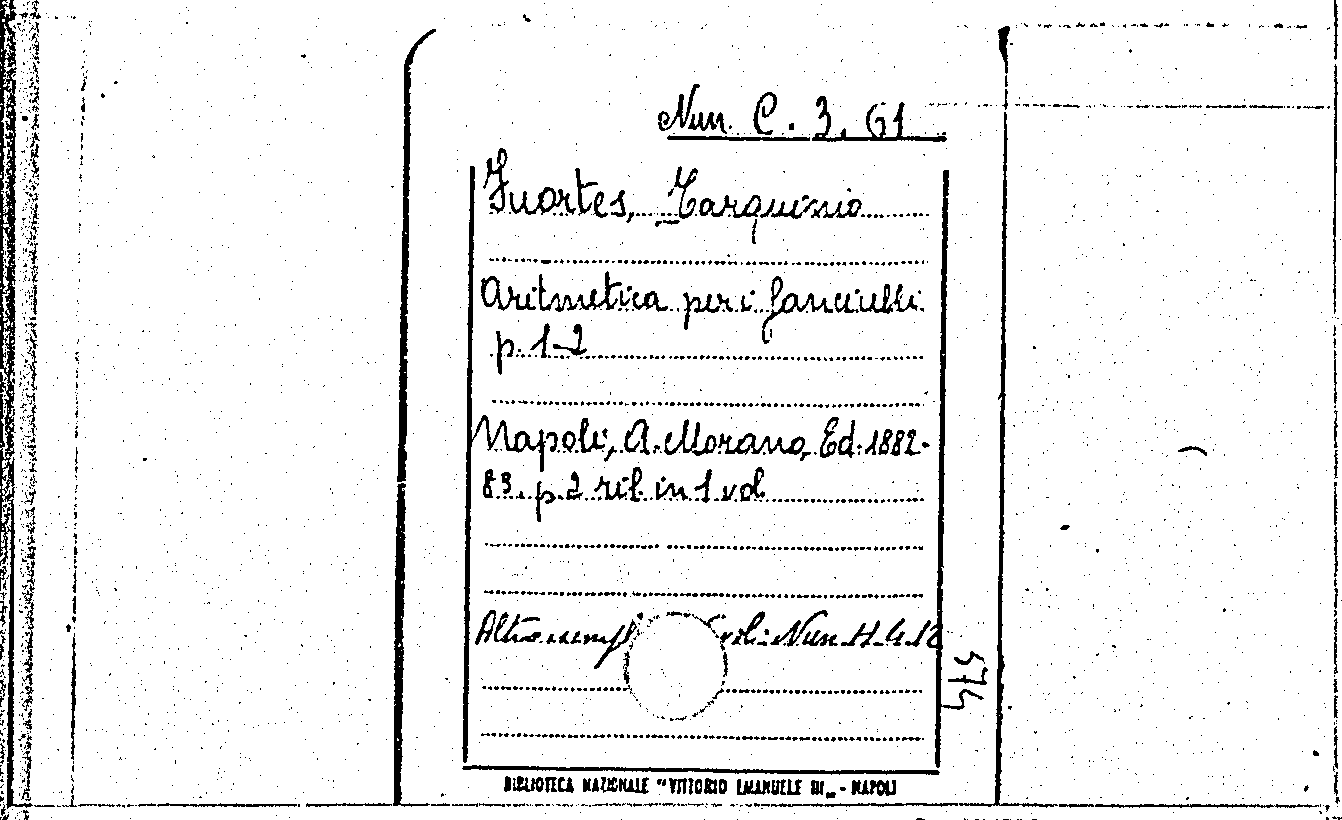 Nun. C. 3. 61
Fuortes, Tarquinio
Aritmetica per i fanciulli
p. 1-2
Napoli, A. Morano, Ed. 1882-
83. p. 2 ril. in 1 vol.
Altro Nun. H. 4.
574
BIBLIOTECA NAZIONALE "VITTORIO EMANUELE III" - NAPOLI